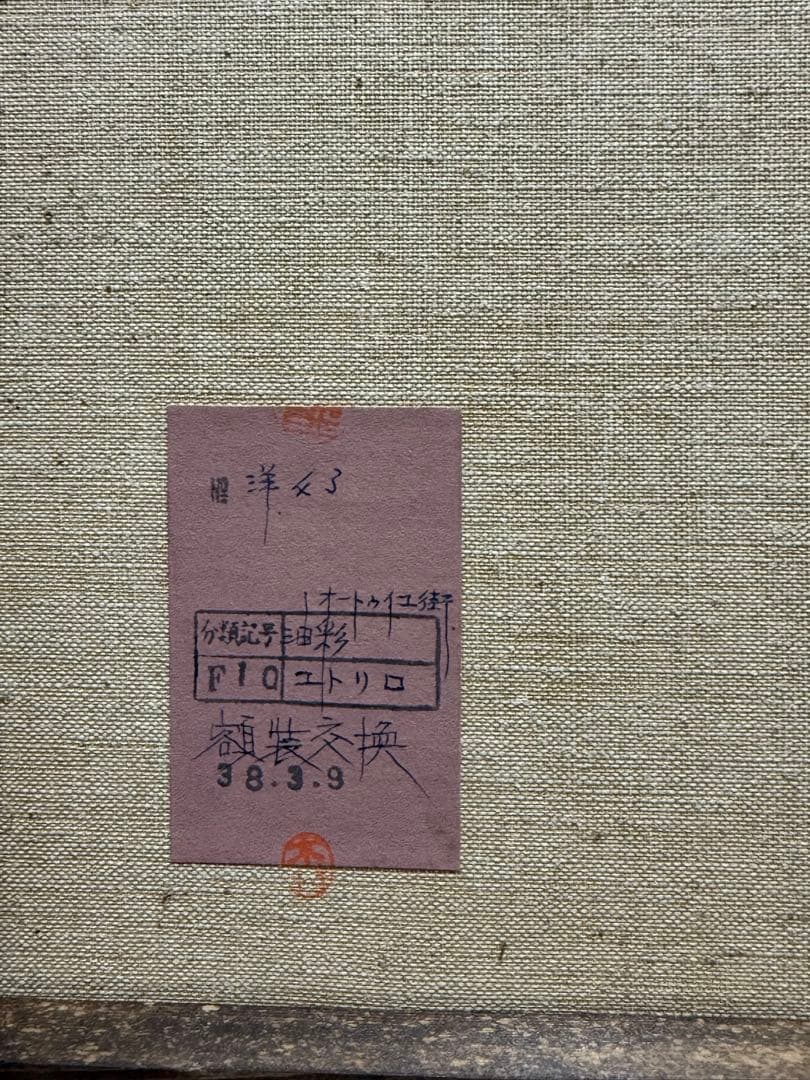 洋
オートゥイユ街
分類記号 油彩
F10 ユトリロ
額装交換
38.3.9